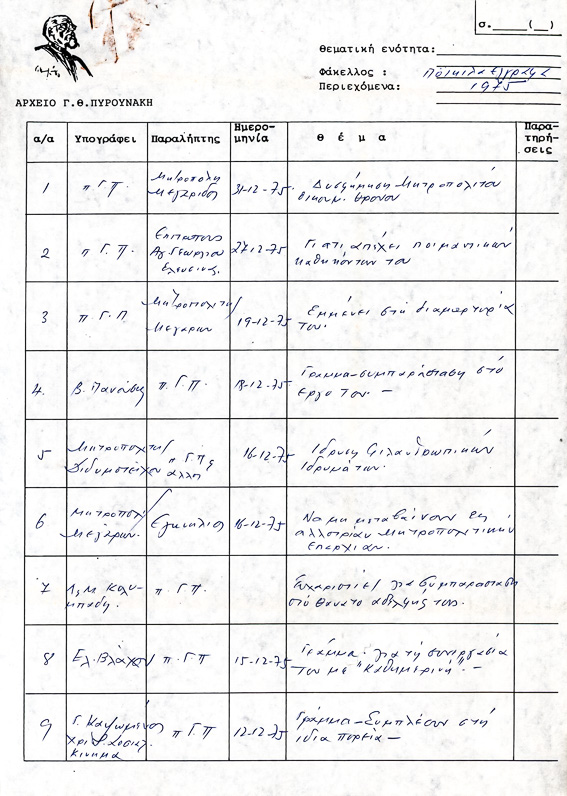 σ.____(__)
Θεματική ενότητα:
Φάκελλος : Ποικίλα έγγραφα
Περιεχόμενα: 1975
ΑΡΧΕΙΟ Γ.Θ.ΠΥΡΟΥΝΑΚΗ
α/α Υπογράφει Παραλήπτης Ημερομηνία Θ έ μ α Παρατηρήσεις
1 π Γ.Π. Μητροπολη Μεγαρίδος 31-12-75 Μητροπολιτου
οικουμ. θρονου
2 π Γ. Π. Επιτροπους
Αγ. Γεωργιου
Ελευσινας. 27-12-75 Γιατι απεχει ποιμαντικων
καθηκοντων του
3 π Γ. Π Μητροπολιτη
Μεγαρων 19-12-75 Εμμενει στη διαμαρτυρία
του.
4. Β. π. Γ. Π. 18-12-75 Γραμμα-συμπαράσταση στο
εργο του. —
5 Μητροπολιτη
Διδυμοτείχου π Γ.Π ς
αλλη 16-12-75 Ιδρυση Φιλανθρωπικων
Ιδρυμάτων.
6 Μητροπολι
Μεγάρων. Εγκυκλιο 16-12-75 Να μη μεταβαίνουν εις
αλλοτρίαν Μητροπολιτικων
επαρχιαν.
7 π. Γ. Π. Ευχαριστίες για συμπαρασταση
στο θανατο αδελφής του.
8 Ελ. Βλαχου π. Γ. Π 15-12-75 Γραμμα. για τη συνεργασία
του με "Καθημερινή". —
9 Γ.
Χρι.
Κινημα π Γ Π 12-12-75 Γραμμα - Συμπλέουν στη
ιδια πορεία —